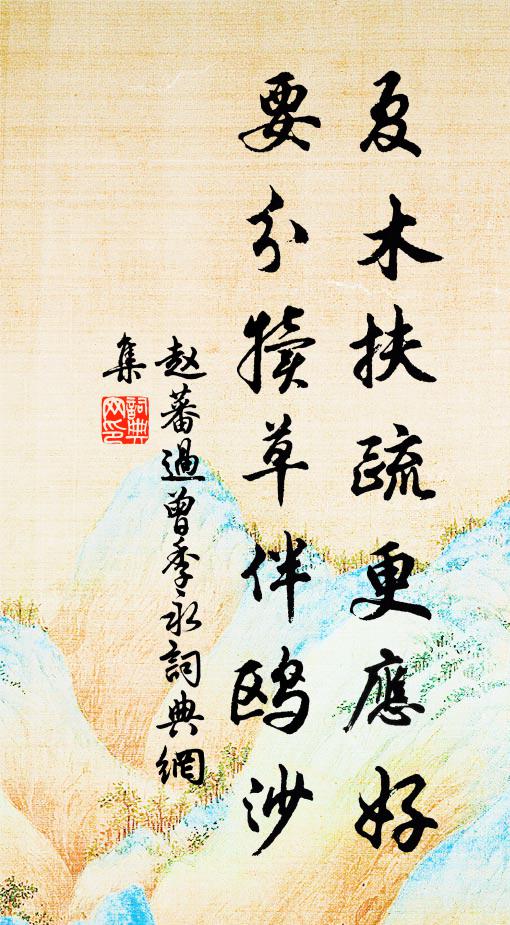 夏木扶疏更應好
要分犢草伴鸥沙
赵蕃過曾季永詞典網
集
詞典网印